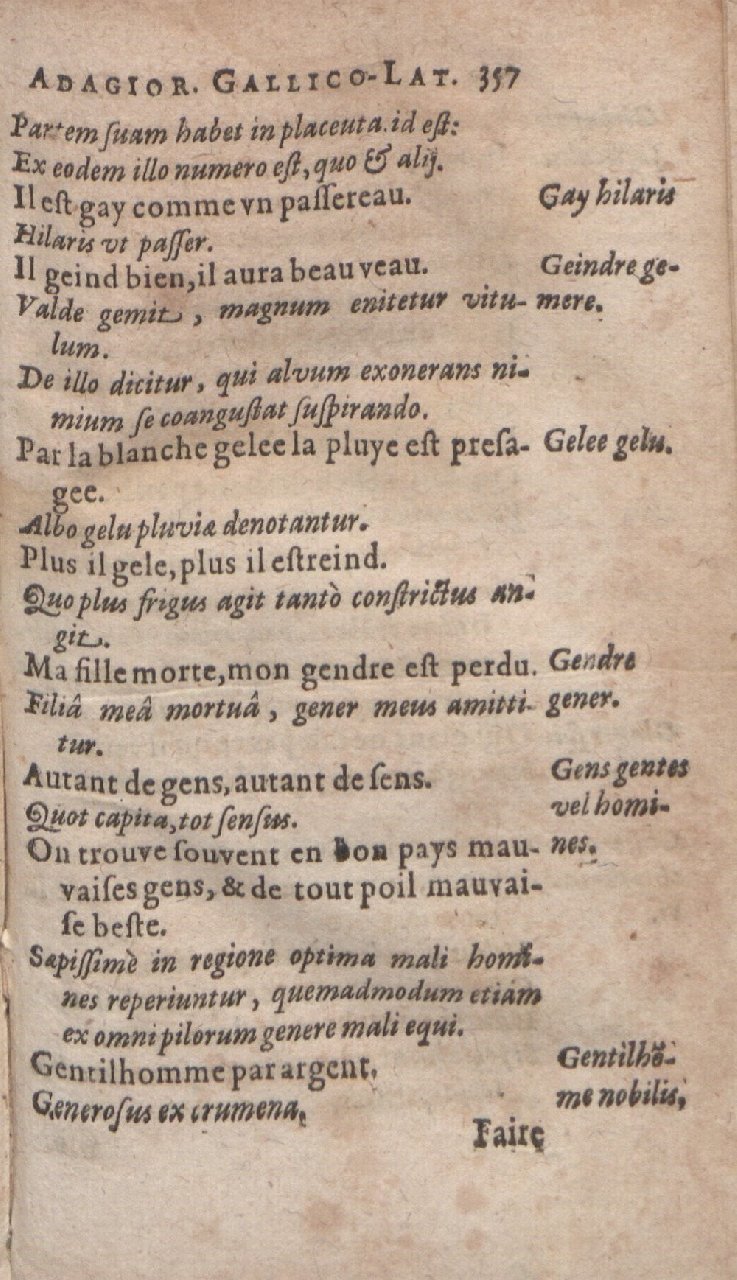 ADAGIOR. GALLICO-LAT. 357
Partem ſuam habet in placeuta. id eſt:
Ex eodem illo numero eſt, quo & alij.
Il eſt gay comme vn paſſereau.
Gay hilaris
Hilaris vt paſſer.
Il geind bien, il aura beau veau.
Geindre ge-
Valde gemit, magnum enitetur vitu-
mere.
lum.
De illo dicitur, qui alvum exonerans ni-
mium ſe coanguſtat ſuſpirando.
Par la blanche gelee la pluye eſt preſa-
Gelee gelu.
gee.
Albo gelu pluviæ denotantur.
Plus il gele, plus il eſtreind.
Quo plus frigus agit tantò conſtrictus an-
git.
Ma fille morte, mon gendre eſt perdu.
Gendre
Filiâ meâ mortuâ, gener meus amitti-
gener.
tur.
Autant de gens, autant de ſens.
Gens gentes
Quot capita, tot ſenſus.
vel homi-
On trouve ſouvent en bon pays mau-
nes.
vaiſes gens, & de tout poil mauvai-
ſe beſte.
Sæpiſſimè in regione optima mali homi-
nes reperiuntur, quemadmodum etiam
ex omni pilorum genere mali equi.
Gentilhomme par argent.
Gentilhō-
me nobilis,
Generoſus ex crumena,
Faire